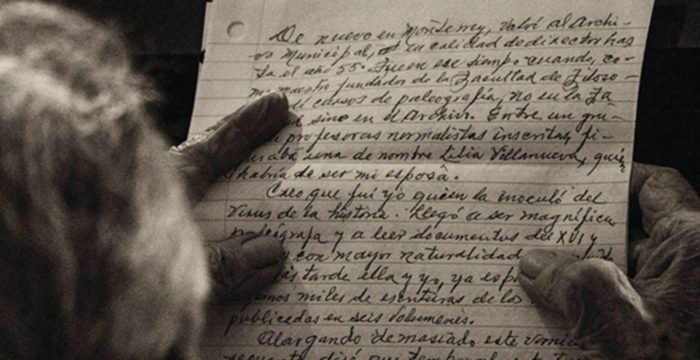 De nuevo en Monterrey, volví al Archi-
vo Municipal, en calidad de director has
ta el año 55. Fue en ese tiempo cuando, co-
mo maestro fundador de la Facultad de Filoso-
cursos de paleografía, no en la Fa
sino en el Archivo. Entre un gru-
profesoras normalistas inscritas, fi-
uraba una de nombre Lilia Villanueva, quien
habría de ser mi esposa.
Creo que fuí yo quien la inoculó del
virus de la historia. Llegó a ser magnífica
paleógrafa y a leer documentos del XVI y
con mayor naturalidad
tarde ella y yo, ya
miles de escrituras de los
publicadas en seis volúmenes.
Alargando demasiado este